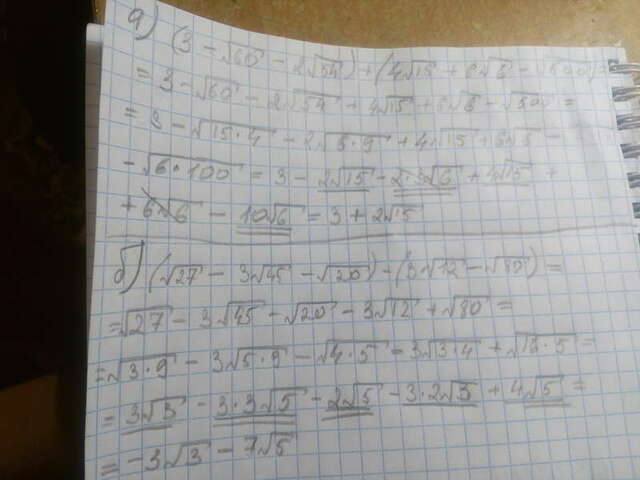 а) (3 - √60 - 2√54) + (4√15 + 6√6 - √600) =
= 3 - √60 - 2√54 + 4√15 + 6√6 - √600 =
= 3 - √15·4 - 2√6·9 + 4√15 + 6√6 -
- √6·100 = 3 - 2√15 - 2·3√6 + 4√15 +
+ 6√6 - 10√6 = 3 + 2√15
б) (√27 - 3√45 - √20) - (3√12 - √80) =
= √27 - 3√45 - √20 - 3√12 + √80 =
= √3·9 - 3√5·9 - √4·5 - 3√3·4 + √16·5 =
= 3√3 - 3·3√5 - 2√5 - 3·2√3 + 4√5 =
= -3√3 - 7√5